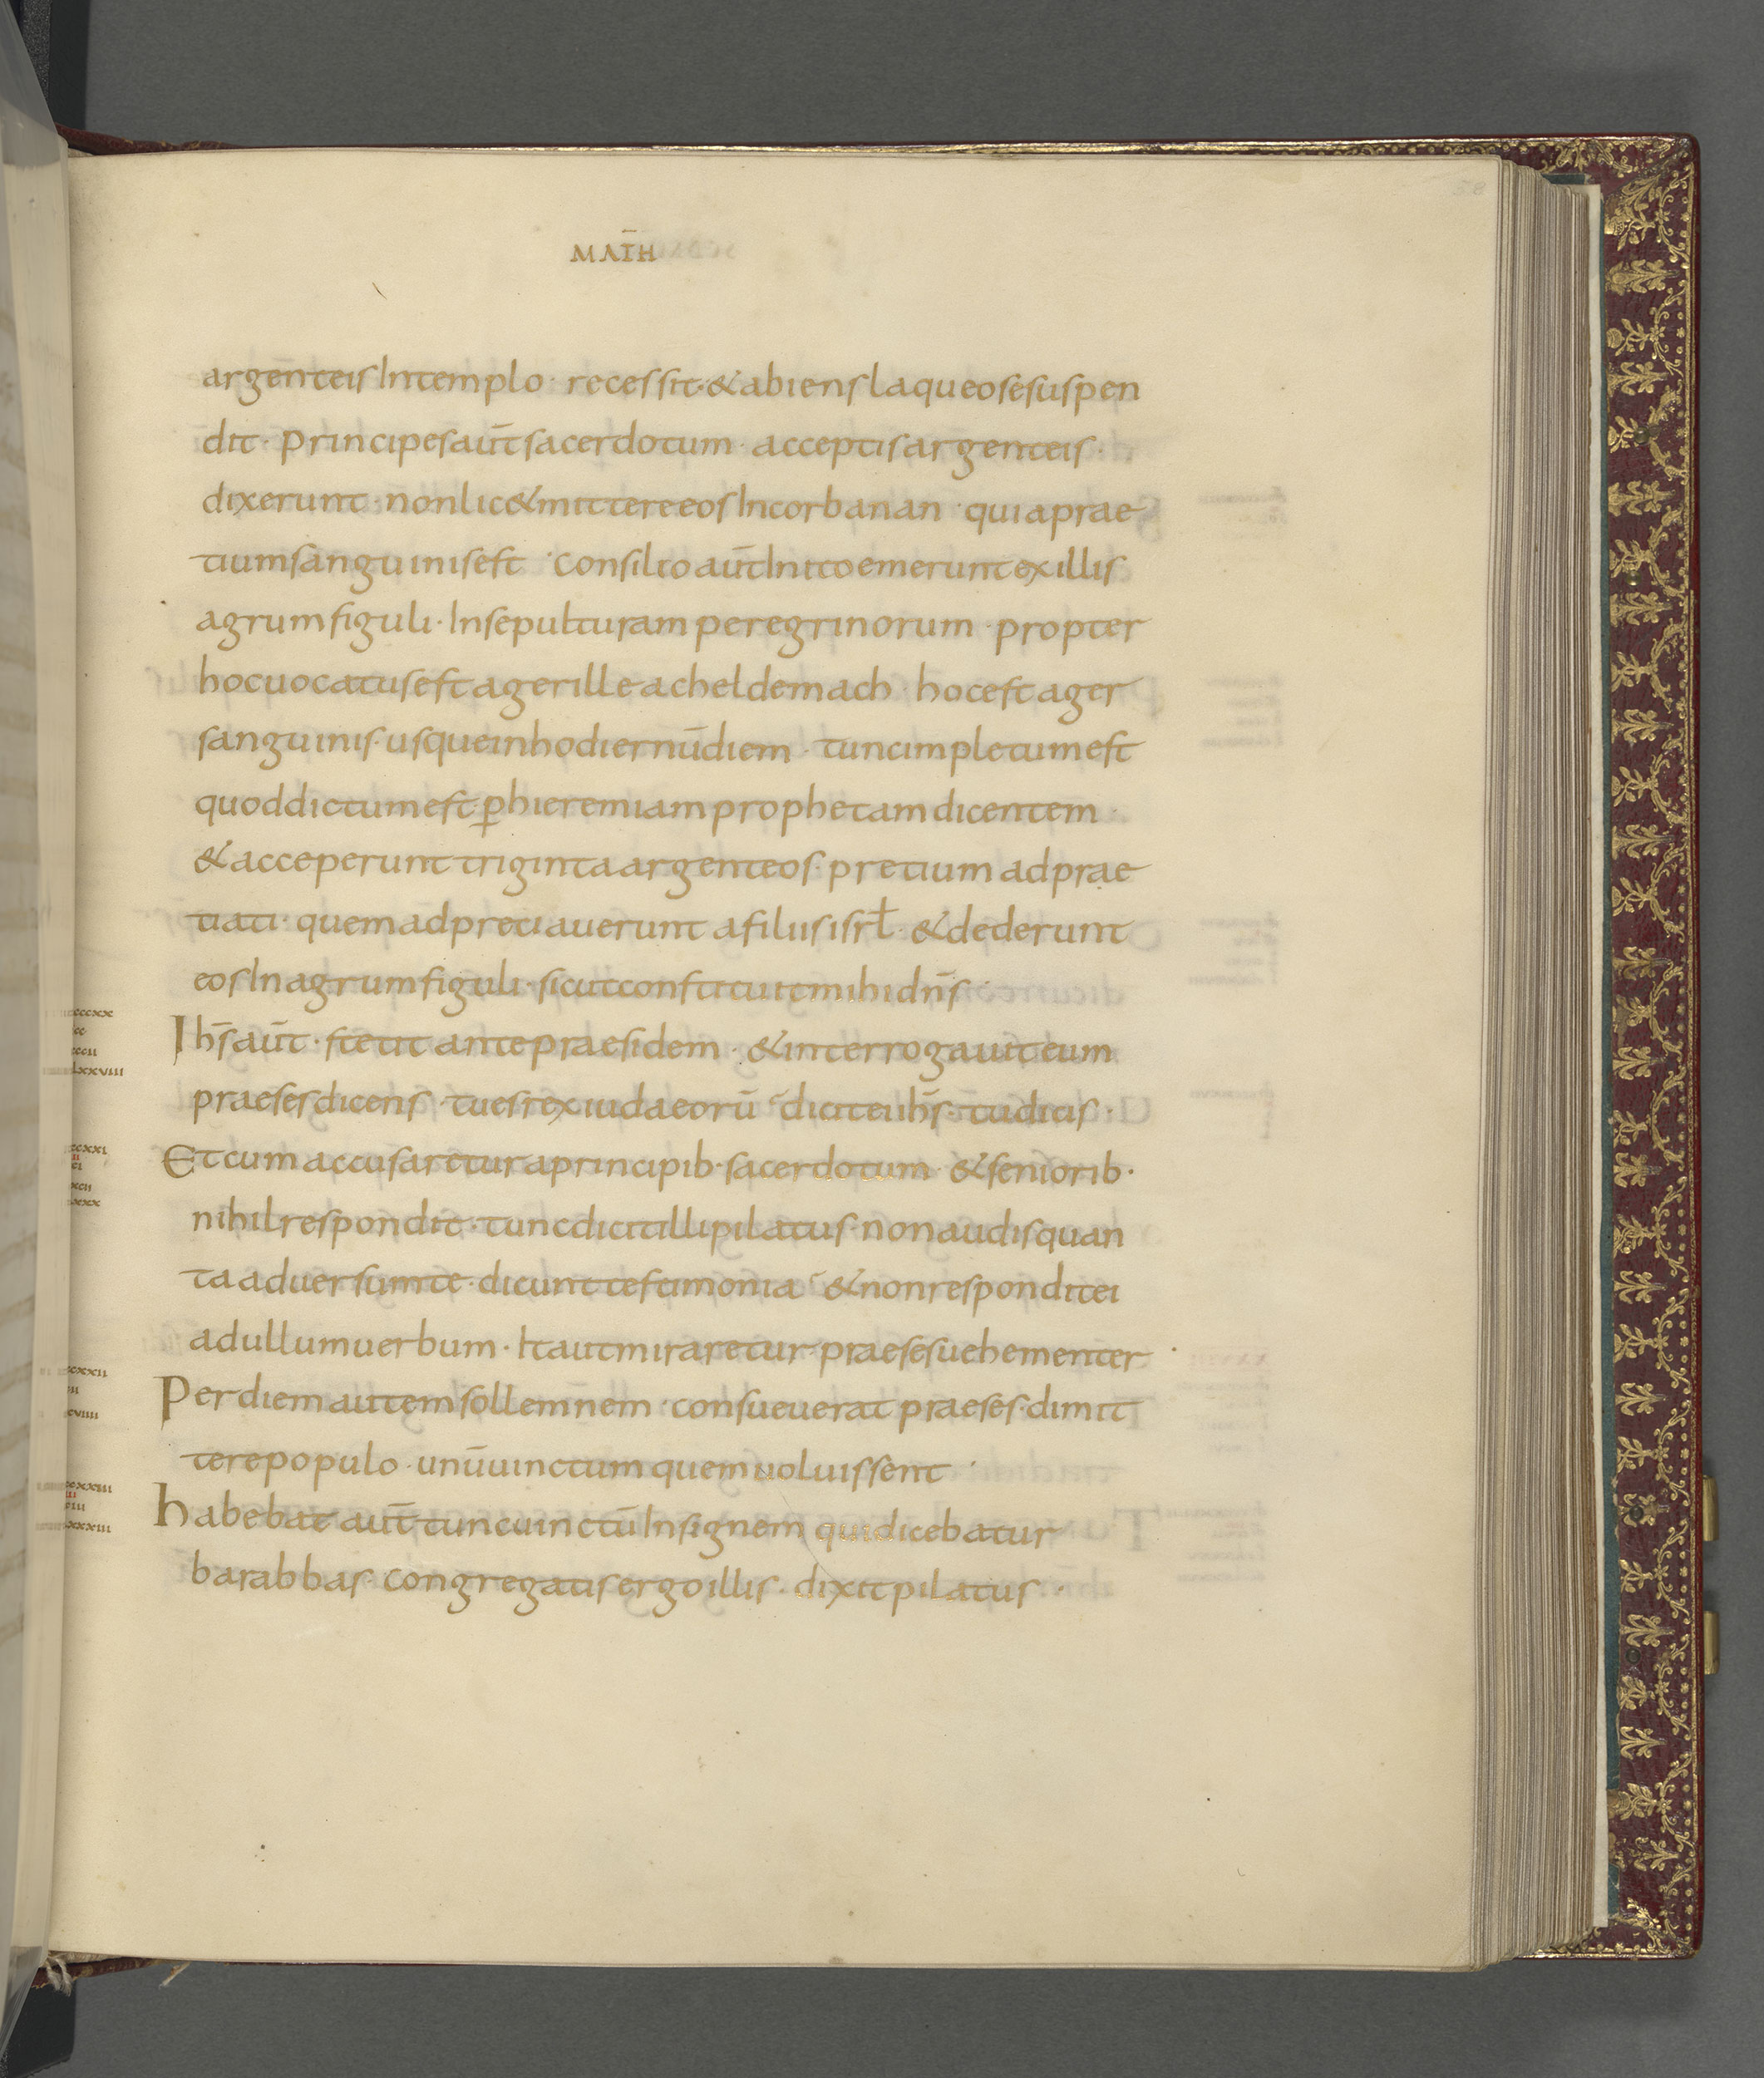 58
MAT̄H
argenteis In templo · recessit · & abiens laqueo se suspen
dit · principes aut̄ sacerdotum · acceptis argenteis ·
dixerunt · non lic& mittere eos In corbanan · quia prae
tium sanguinis est · Consilio aut̄ Inito emerunt ex illis
agrum figuli · In sepulturam peregrinorum · propter
hoc uocatus est ager ille acheldemach · hoc est ager
sanguinis · usque in hodiernū diem · tunc impletum est
quod dictum est ꝑ hieremiam prophetam dicentem ·
& acceperunt triginta argenteos · pretium adprae
tiati · quem adpretiauerunt a filiis isrł · & dederunt
eos In agrum figuli · sicut constituit mihi dn̄s ·
Ih̄s aut̄ · stetit ante praesidem · & interrogauit eum
praeses dicens · tu es rex iudaeorū · dicit ei ih̄s · tu dicis ·
Et cum accusaretur a principib· sacerdotum · & seniorib·
nihil respondit · tunc dicit illi pilatus · non audis quan
ta aduersum te · dicunt testimonia · & non respondit ei
ad ullum uerbum · Ita ut miraretur praeses uehementer ·
Per diem autem sollemnem · consueuerat praeses · dimit
tere populo · unū uinctum quem uoluissent ·
habebat aut̄ tunc uinctū Insignem qui dicebatur
barabbas · Congregatis ergo illis · dixit pilatus ·